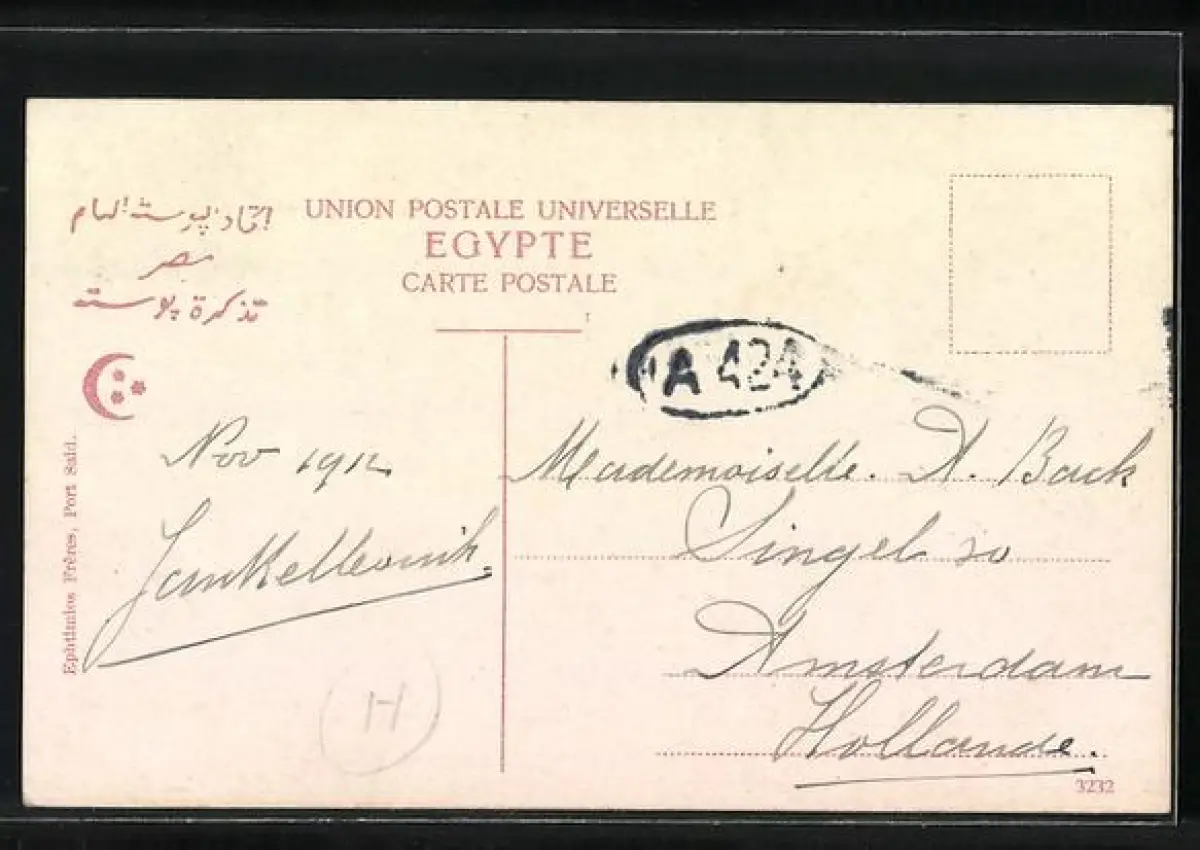 اتحاد پوسته العام
مصر
تذكرة پوسته
UNION POSTALE UNIVERSELLE
EGYPTE
CARTE POSTALE
A 424
Ephtimios Frères, Port Said.
Nov 1912
Mademoiselle. A. Back
Singel
Amsterdam
Hollande.
H
3232